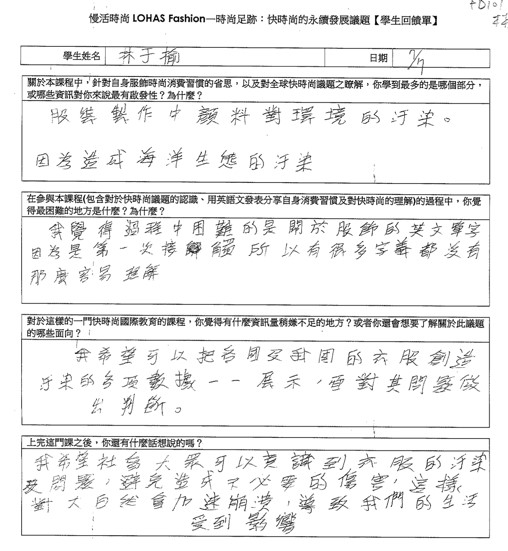 慢活時尚 LOHAS Fashion—時尚足跡：快時尚的永續發展議題【學生回饋單】
學生姓名 林于榆 日期 7/7
關於本課程中，針對自身服飾時尚消費習慣的省思，以及對全球快時尚議題之瞭解，你學到最多的是哪個部分，
或哪些資訊對你來說最有啟發性？為什麼？
服裝製作中顏料對環境的汙染。
因為造成海洋生態的汙染
在參與本課程(包含對於快時尚議題的認識、用英語文發表分享自身消費習慣及對快時尚的理解)的過程中，你覺
得最困難的地方是什麼？為什麼？
我覺得過程中困難的是關於服飾的英文單字
因為是第一次接觸所以有很多字彙都沒有
那麼容易理解
對於這樣的一門快時尚國際教育的課程，你覺得有什麼資訊量稍嫌不足的地方？或者你還會想要了解關於此議題
的哪些面向？
我希望可以把各國及我國的衣服創造
汙染的各項數據一一展示，面對其問題做
出判斷。
上完這門課之後，你還有什麼話想說的嗎？
我希望社會大眾可以意識到衣服的汙染
及問題，避免造成不必要的傷害，這樣
對大自然會加速崩潰，導致我們的生活
受到影響